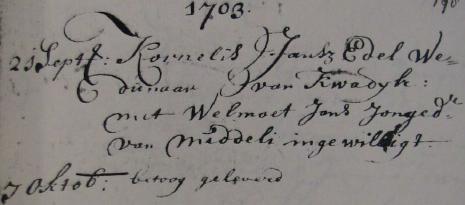 1703.
190
21 Septr: Kornelis Jansz Edel We-
dunaar van Kwadyk:
met Welmoet Jans Jongedr
van Middeli ingewilligt.
7 Oktob: betoog geleverd